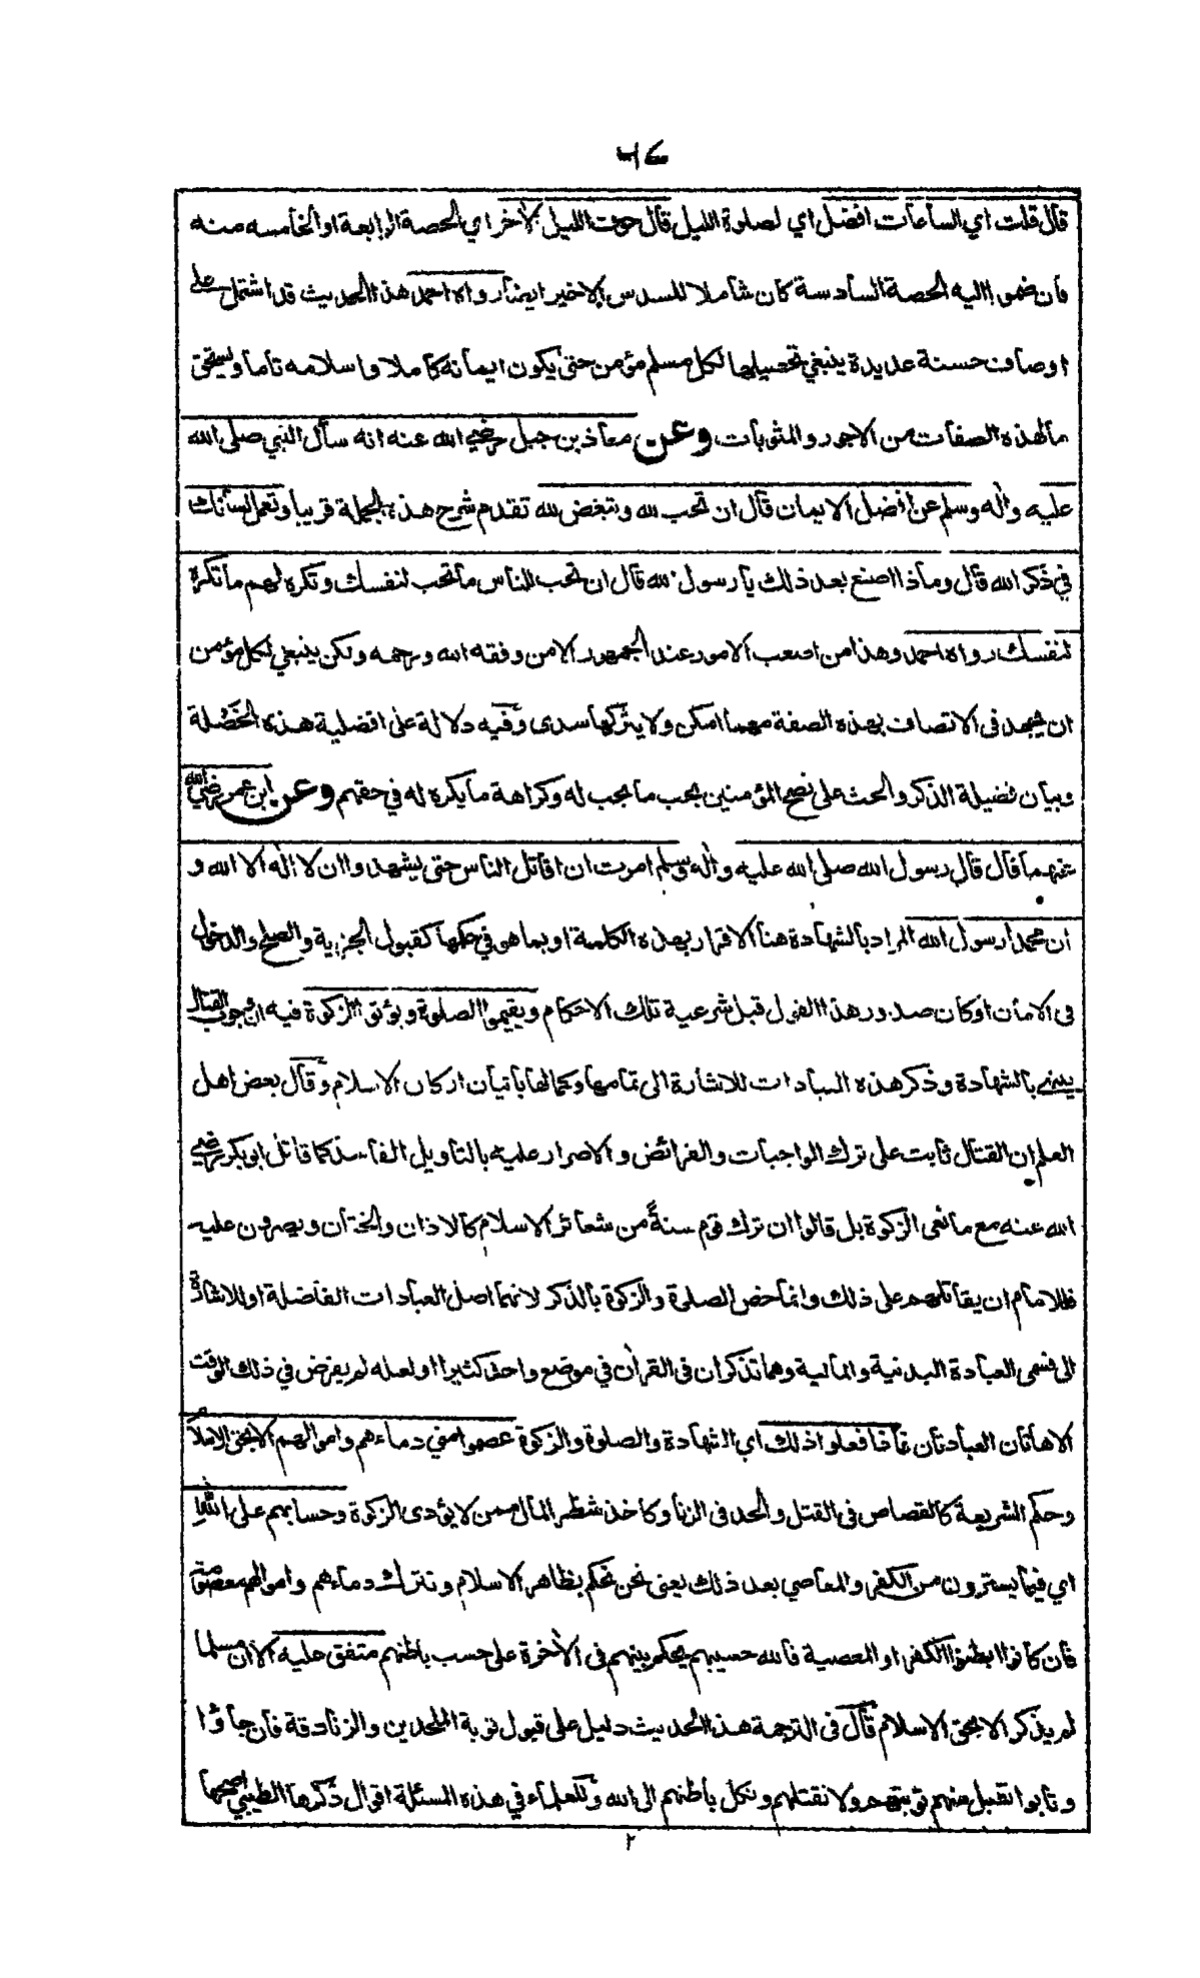 ٦٧
قال قلت اي الساعات افضل اي لصلوة الليل قال جوف الليل الاخر اي الحصة الرابعة او الخامسه منه
فان ضموا اليه الحصة السادسة كان شاملا للسدس الاخير ايضا رواه احمد هذا الحديث قد اشتمل على
اوصاف حسنة عديدة ينبغي تحصيلها لكل مسلم مؤمن حتى يكون ايمانه كاملا واسلامه تاما ويستحق
ما لهذه الصفات من الاجور والمثوبات وعن معاذ بن جبل رضي الله عنه انه سأل النبي صلى الله
عليه واله وسلم عن افضل الايمان قال ان تحب لله وتبغض لله تقدم شرح هذه الجملة قريبا وتعمل لسانك
في ذكر الله قال وماذا اصنع بعد ذلك يا رسول الله قال ان تحب للناس ما تحب لنفسك وتكره لهم ما تكره
لنفسك رواه احمد وهذا من اصعب الامور عند الجمهور الا من وفقه الله ورحمه ولكن ينبغي لكل مؤمن
ان يجهد فى الاتصاف بهذه الصفة مهما امكن ولا يتركها سدى وفيه دلالة على افضلية هذه الخصلة
وبيان فضيلة الذكر والحث على نصح المؤمنين بحب ما يحب له وكراهة ما يكره له في حقهم وعن ابن عمر رضي الله
عنهما قال قال رسول الله صلى الله عليه واله وسلم امرت ان اقاتل الناس حتى يشهدوا ان لا اله الا الله و
ان محمدا رسول الله المراد بالشهادة هنا الاقرار بهذه الكلمة او بما هى في حكمها كقبول الجزية والصلح والدخول
فى الامان او كان صدور هذا القول قبل شرعية تلك الاحكام ويقيموا الصلوة ويؤتوا الزكوة فيه ان وجوب القتال
ينتهي بالشهادة وذكر هذه العبادات للاشارة الى تمامها وكمالها باتيان اركان الاسلام وقال بعض اهل
العلم ان القتال ثابت على ترك الواجبات والفرائض والاصرار عليه بالتاويل الفاسد كما قاتل ابو بكر رضي
الله عنه مع مانعى الزكوة بل قالوا ان ترك قوم سنةً من شعائر الاسلام كالاذان والختان ويصرون عليه
فللامام ان يقاتلهم على ذلك وانما خص الصلوة والزكوة بالذكر لانهما اصل العبادات الفاضلة او للاشارة
الى قسمى العبادة البدنية والمالية وهما تذكران فى القران في موضع واحد كثيرا او لعله لم يفرض في ذلك الوقت
الا هاتان العبادتان فاذا فعلوا ذلك اي الشهادة والصلوة والزكوة عصموا مني دماءهم واموالهم الا بحق الاسلام
وحكم الشريعة كالقصاص فى القتل والحد فى الزنا وكاخذ شطر المال ممن لا يؤدى الزكوة وحسابهم على الله
اي فيما يسترون من الكفر والمعاصي بعد ذلك يعنى نحن نحكم بظاهر الاسلام ونترك دماءهم واموالهم معصومة
فان كانوا ابطنوا الكفر او المعصية فالله حسيبهم يحكم بينهم فى الاخرة على حسب باطنهم متفق عليه الا ان مسلما
لم يذكر الا بحق الاسلام قال فى الترجمة هذا الحديث دليل على قبول توبة الملحدين والزنادقة فان جاؤا
وتابوا نقبل منهم توبتهم ولا نقتلهم ونكل باطنهم الى الله وللعلماء في هذه المسئلة اقوال ذكرها الطيبي اصحها
٢